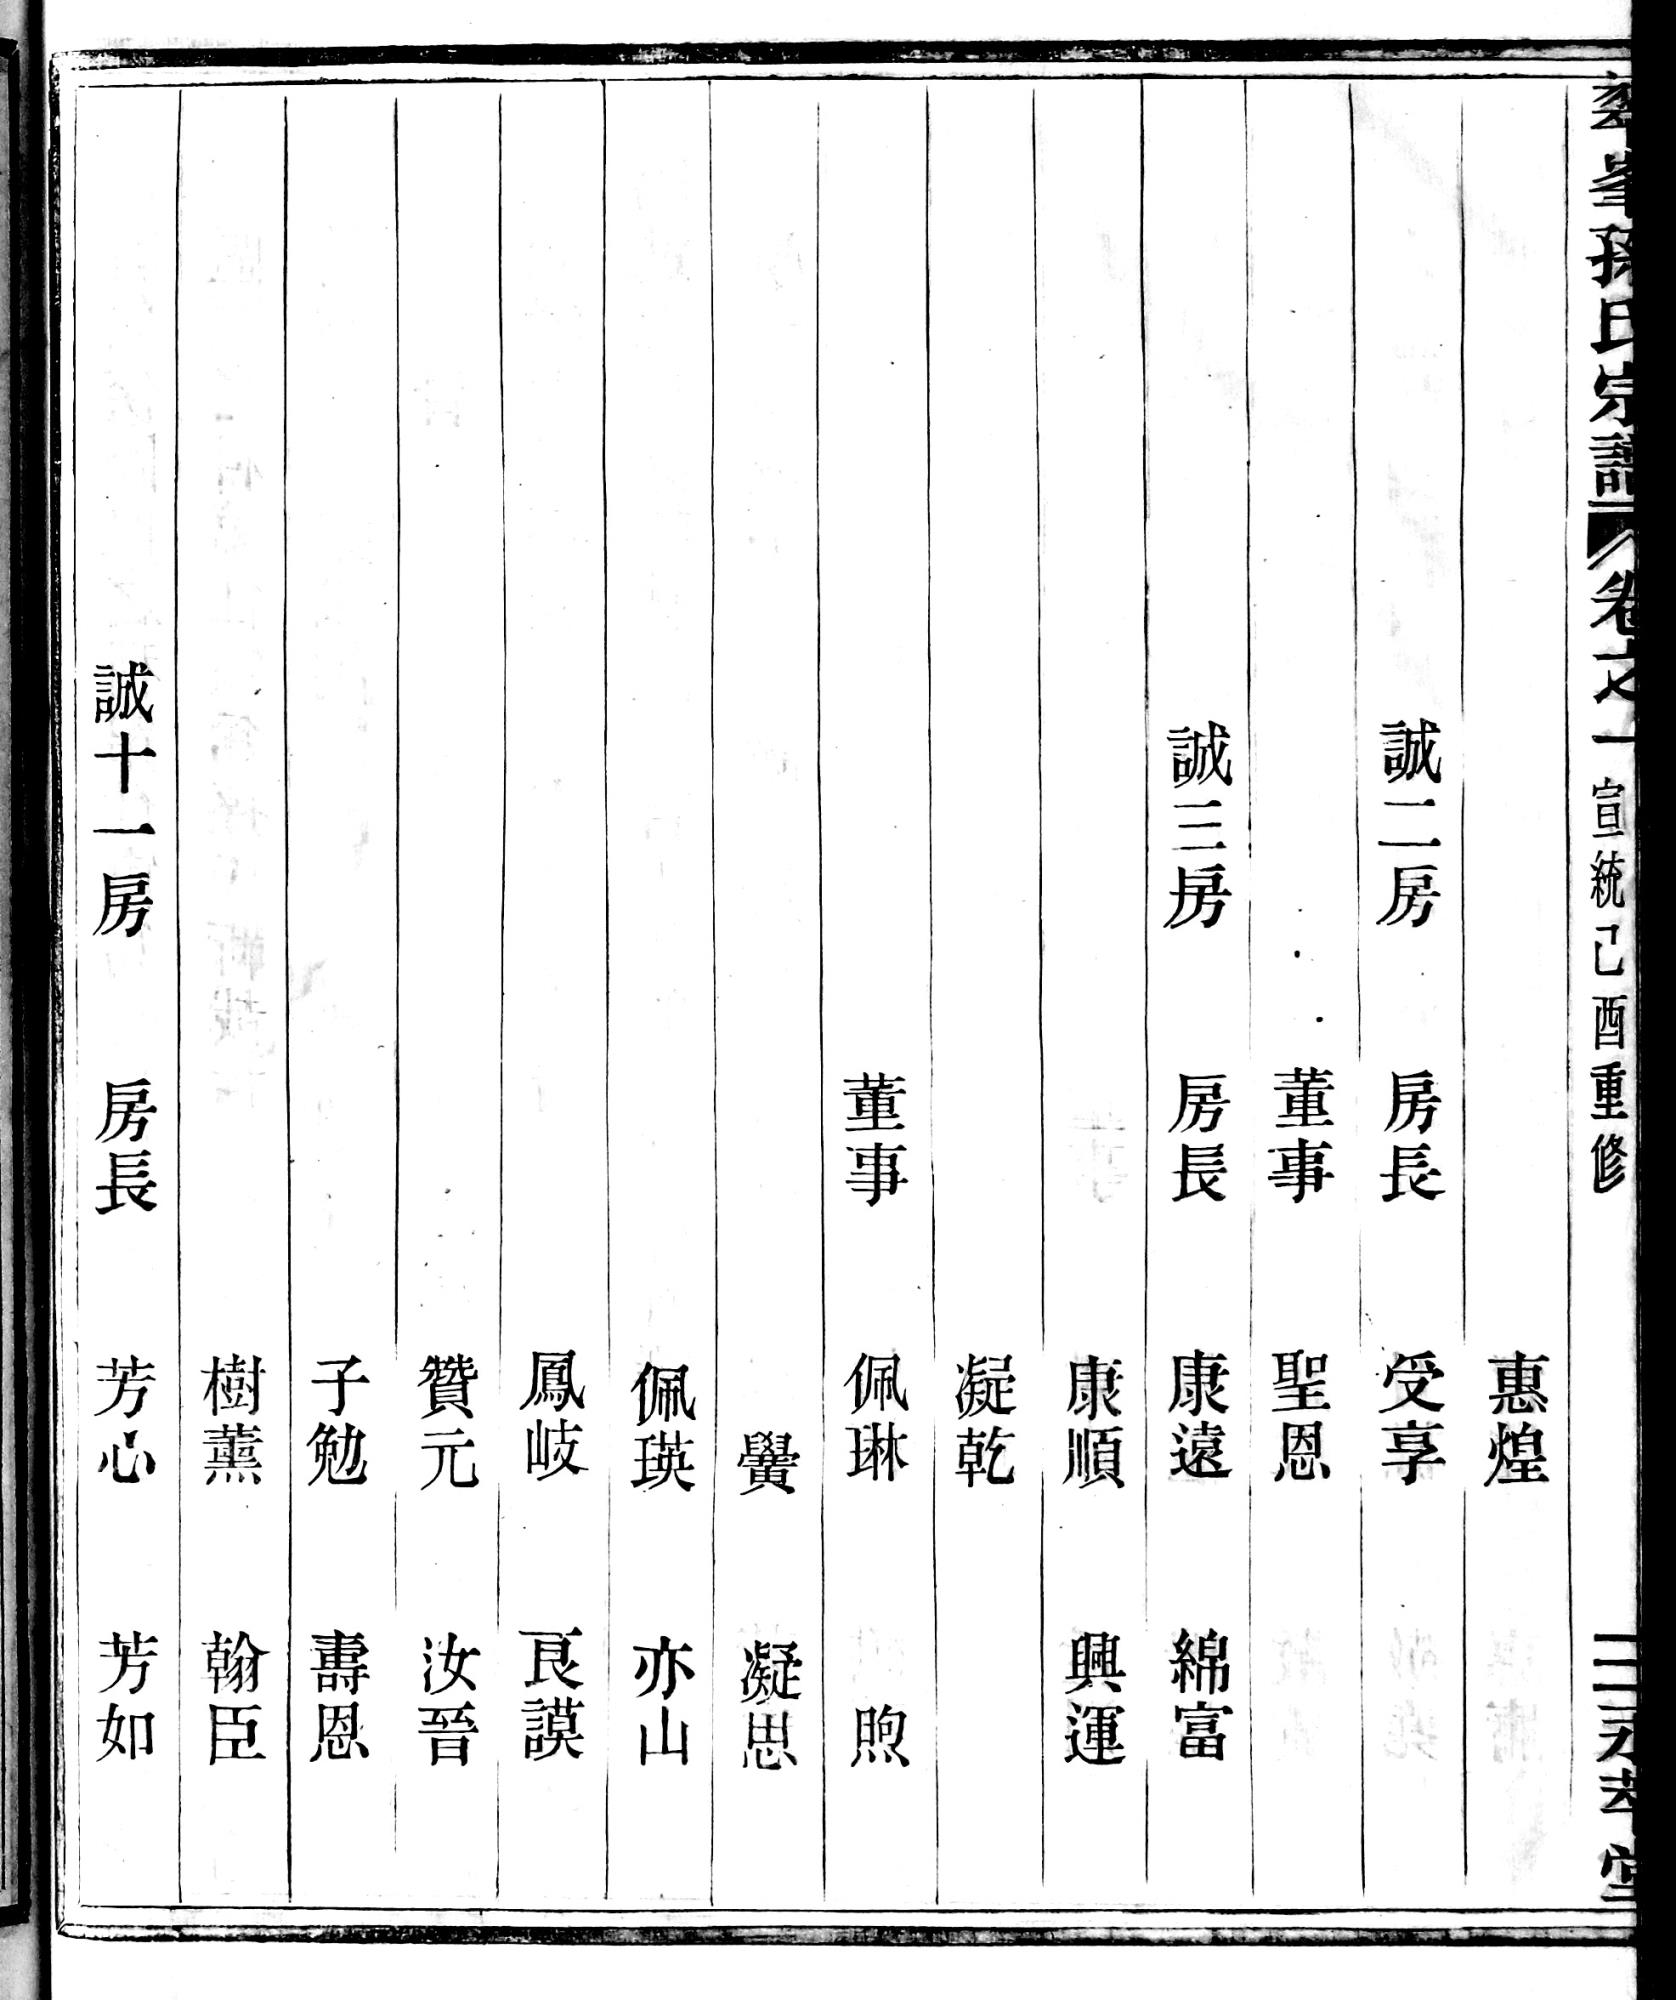 峯孫氏宗譜 卷之一 宣統己酉重修 二 永萃堂
惠煌
誠二房 房長 受享
董事 聖恩
誠三房 房長 康遠 綿富
康順 興運
凝乾
董事 佩琳 煦
黌 凝思
佩瑛 亦山
鳳岐 良謨
贊元 汝晉
子勉 壽恩
樹薰 翰臣
誠十一房 房長 芳心 芳如